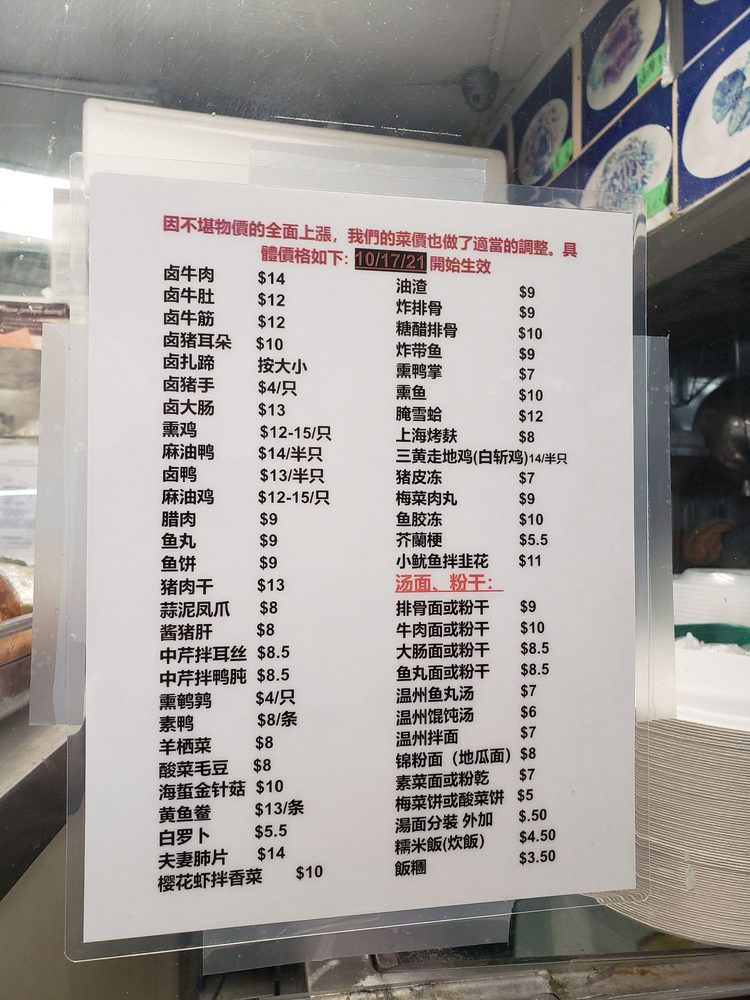 因不堪物價的全面上漲，我們的菜價也做了適當的調整。具
體價格如下: 10/17/21 開始生效
卤牛肉 $14
卤牛肚 $12
卤牛筋 $12
卤猪耳朵 $10
卤扎蹄 按大小
卤猪手 $4/只
卤大肠 $13
熏鸡 $12-15/只
麻油鸭 $14/半只
卤鸭 $13/半只
麻油鸡 $12-15/只
腊肉 $9
鱼丸 $9
鱼饼 $9
猪肉干 $13
蒜泥凤爪 $8
酱猪肝 $8
中芹拌耳丝 $8.5
中芹拌鸭肫 $8.5
熏鹌鹑 $4/只
素鸭 $8/条
羊栖菜 $8
酸菜毛豆 $8
海蜇金针菇 $10
黄鱼鲞 $13/条
白罗卜 $5.5
夫妻肺片 $14
樱花虾拌香菜 $10
油渣 $9
炸排骨 $9
糖醋排骨 $10
炸带鱼 $9
熏鸭掌 $7
熏鱼 $10
腌雪蛤 $12
上海烤麸 $8
三黄走地鸡(白斩鸡)14/半只
猪皮冻 $7
梅菜肉丸 $9
鱼胶冻 $10
芥蘭梗 $5.5
小鱿鱼拌韭花 $11
汤面、粉干：
排骨面或粉干 $9
牛肉面或粉干 $10
大肠面或粉干 $8.5
鱼丸面或粉干 $8.5
温州鱼丸汤 $7
温州馄饨汤 $6
温州拌面 $7
锦粉面（地瓜面）$8
素菜面或粉乾 $7
梅菜饼或酸菜饼 $5
湯面分装 外加 $.50
糯米飯(炊飯） $4.50
飯糰 $3.50